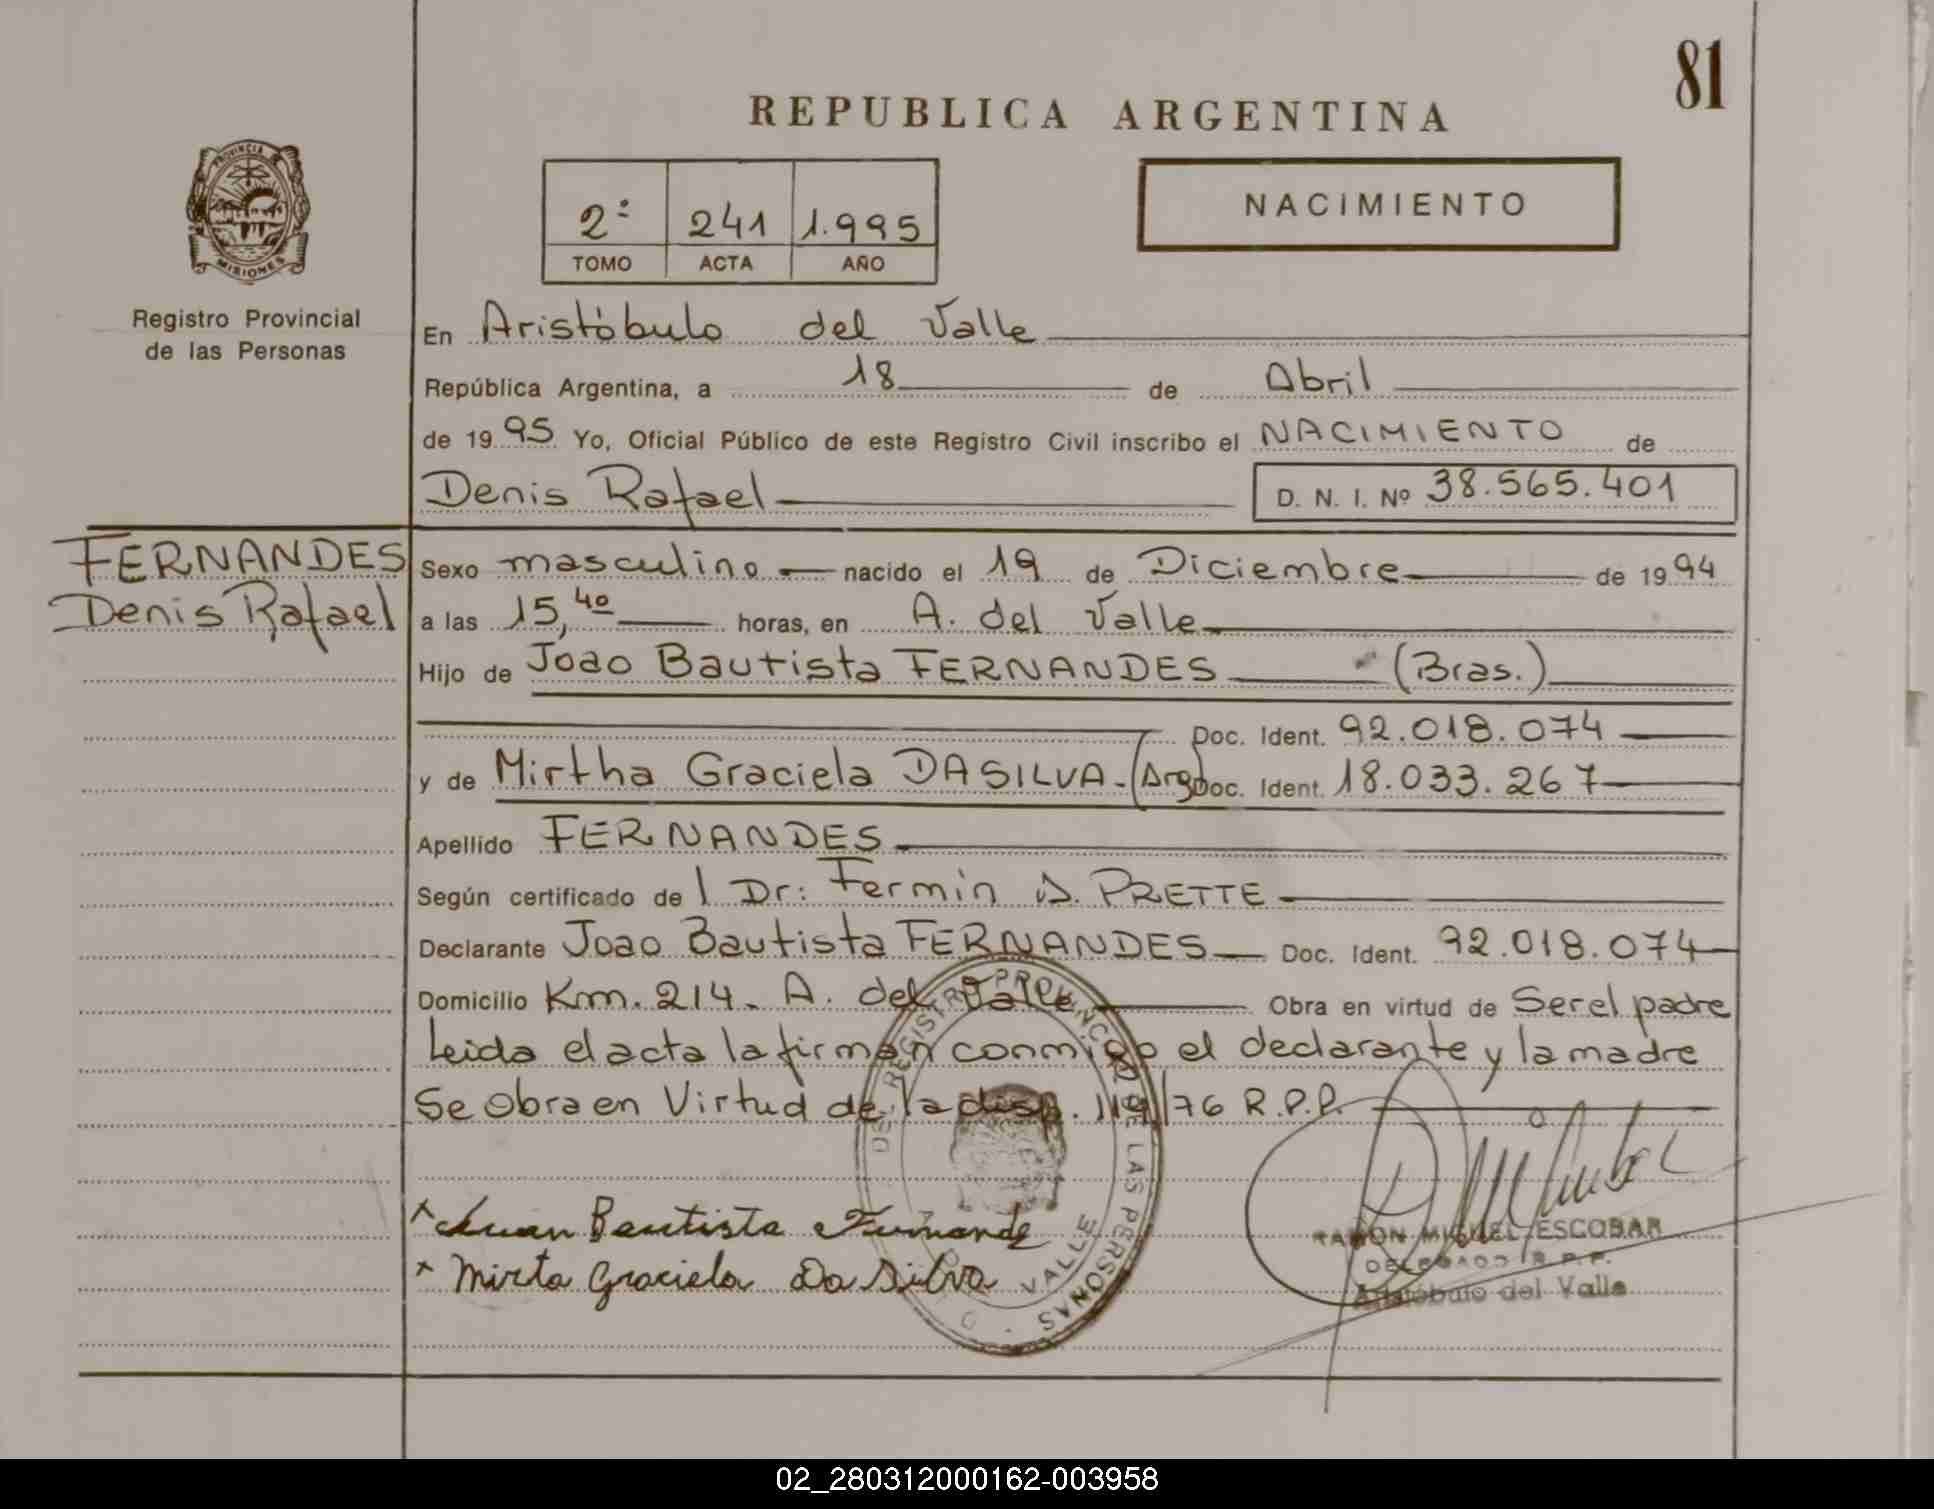 81
REPUBLICA ARGENTINA
PROVINCIA DE
MISIONES
Registro Provincial
de las Personas
2º 241 1.995
TOMO ACTA AÑO
NACIMIENTO
En Aristóbulo del Valle
República Argentina, a 18 de Abril
de 1995 Yo, Oficial Público de este Registro Civil inscribo el NACIMIENTO de
Denis Rafael D. N. I. Nº 38.565.401
FERNANDES
Denis Rafael
Sexo masculino nacido el 19 de Diciembre de 1994
a las 15,40 horas, en A. del Valle
Hijo de Joao Bautista FERNANDES (Bras.)
Doc. Ident. 92.018.074
y de Mirtha Graciela DASILVA-(Arg) Doc. Ident. 18.033.267
Apellido FERNANDES
Según certificado de l Dr: Fermin A. PRETTE
Declarante Joao Bautista FERNANDES Doc. Ident. 92.018.074
Domicilio Km. 214. A. del Valle Obra en virtud de Ser el padre
Leida el acta la firman conmigo el declarante y la madre
Se obra en Virtud de la disp. 119/76 R.P.P.
REGISTRO PROVINCIAL DE LAS PERSONAS
VALLE
Juan Bautista Fernande
Mirta Graciela Da Silva
RAMON MIGUEL ESCOBAR
DELEGADO R.P.P.
Aristóbulo del Valle
02_280312000162-003958